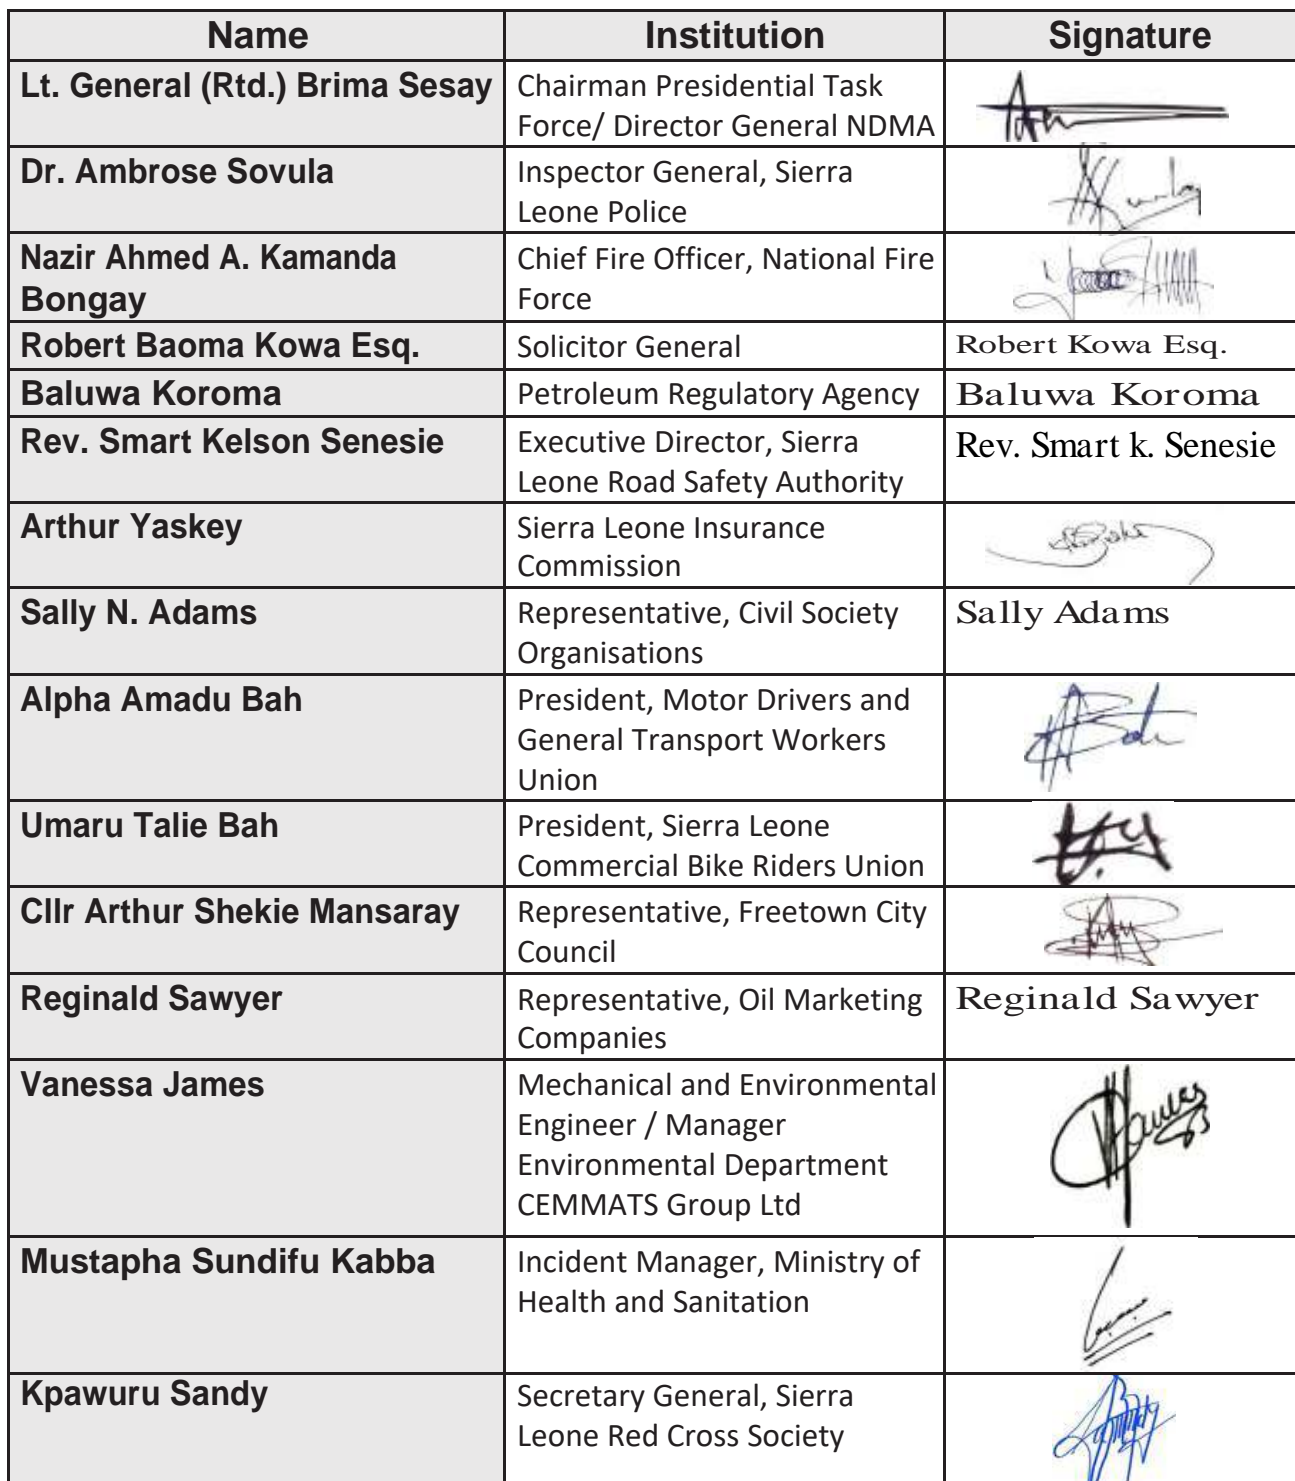 Name Institution Signature
Lt. General (Rtd.) Brima Sesay Chairman Presidential Task
Force/ Director General NDMA
Dr. Ambrose Sovula Inspector General, Sierra
Leone Police
Nazir Ahmed A. Kamanda Chief Fire Officer, National Fire
Bongay Force
Robert Baoma Kowa Esq. Solicitor General Robert Kowa Esq.
Baluwa Koroma Petroleum Regulatory Agency Baluwa Koroma
Rev. Smart Kelson Senesie Executive Director, Sierra Rev. Smart k. Senesie
Leone Road Safety Authority
Arthur Yaskey Sierra Leone Insurance
Commission
Sally N. Adams Representative, Civil Society Sally Adams
Organisations
Alpha Amadu Bah President, Motor Drivers and
General Transport Workers
Union
Umaru Talie Bah President, Sierra Leone
Commercial Bike Riders Union
Cllr Arthur Shekie Mansaray Representative, Freetown City
Council
Reginald Sawyer Representative, Oil Marketing Reginald Sawyer
Companies
Vanessa James Mechanical and Environmental
Engineer / Manager
Environmental Department
CEMMATS Group Ltd
Mustapha Sundifu Kabba Incident Manager, Ministry of
Health and Sanitation
Kpawuru Sandy Secretary General, Sierra
Leone Red Cross Society